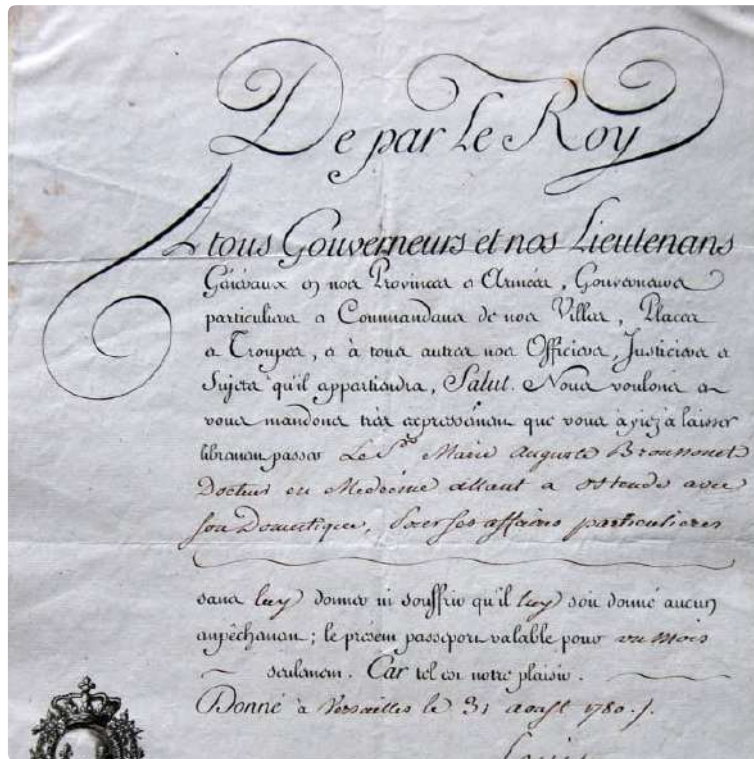 De par le Roy
A tous Gouverneurs et nos Lieutenans
Généraux en nos Provinces et Armées, Gouverneurs
particuliers et Commandans de nos Villes, Places
et Troupes, et à tous autres nos Officiers, Justiciers et
Sujets qu'il appartiendra, Salut. Nous voulons et
vous mandons très expressément que vous àyiez à laisser
librement passer Le Sr. Marie Auguste Broussonet
Docteur en Medecine allant a Ostende avec
son Domestique, Pour ses affaires particulieres
sans luy donner ni souffrir qu'il luy soit donné aucun
empêchement; le présent passeport valable pour un mois
seulement. Car tel est notre plaisir.
Donné à Versailles le 31 aoust 1780.
Louis